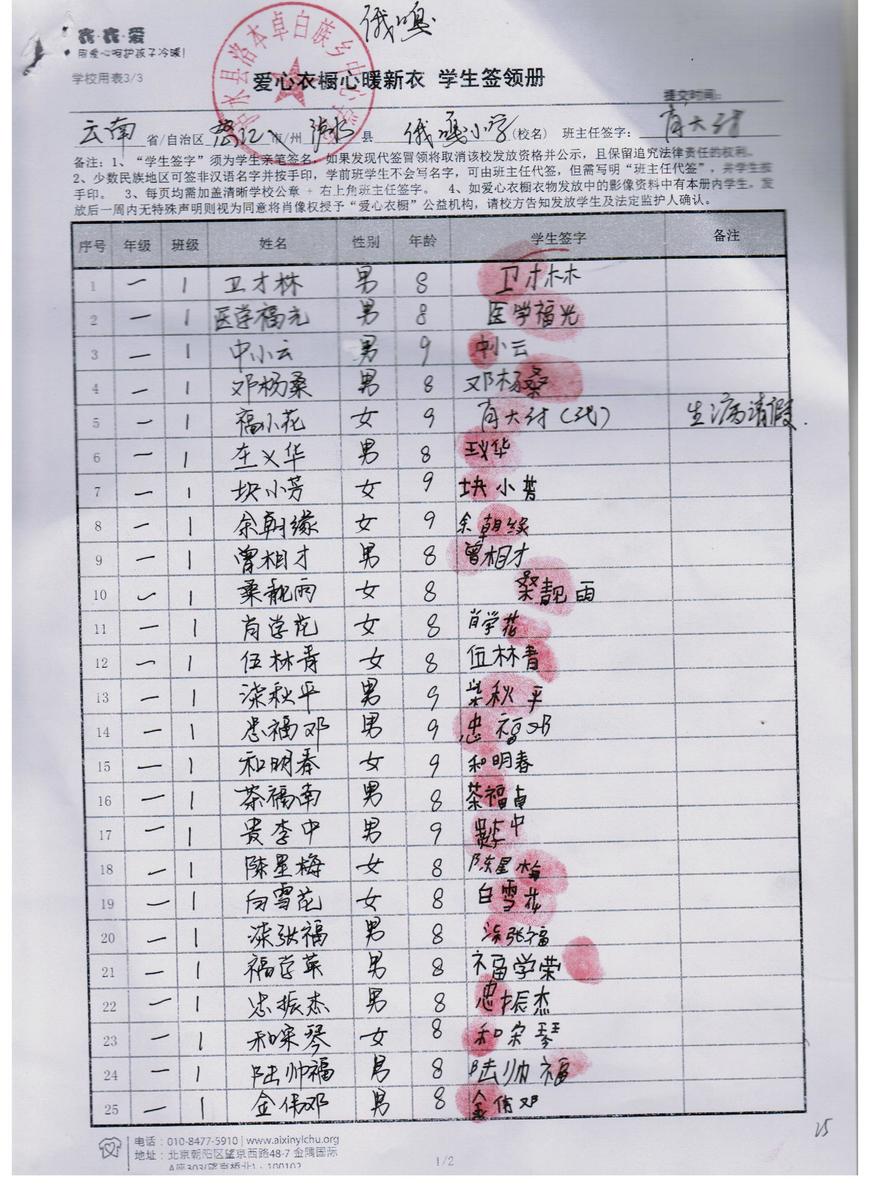 俄嘎
用爱心呵护孩子冷暖!
学校用表3/3
爱心衣橱心暖新衣 学生签领册
提交时间:
云南 省/自治区 怒江 市/州 泸水 县 俄嘎小学 (校名) 班主任签字: 肖大付
备注：1、“学生签字”须为学生亲笔签名，如果发现代签冒领将取消该校发放资格并公示，且保留追究法律责任的权利。
2、少数民族地区可签非汉语名字并按手印，学前班学生不会写名字，可由班主任代签，但需写明“班主任代签”，并学生按
手印。 3、每页均需加盖清晰学校公章 + 右上角班主任签字。 4、如爱心衣橱衣物发放中的影像资料中有本册内学生，发
放后一周内无特殊声明则视为同意将肖像权授予“爱心衣橱”公益机构，请校方告知发放学生及法定监护人确认。
序号 年级 班级 姓名 性别 年龄 学生签字 备注
1 一 1 卫才林 男 8 卫才林
2 一 1 医学福光 男 8 医学福光
3 一 1 中小云 男 9 中小云
4 一 1 邓杨桑 男 8 邓杨桑
5 一 1 福小花 女 9 肖大付(代) 生病请假
6 一 1 义华 男 8 华
7 一 1 块小芳 女 9 块小芳
8 一 1 余朝缘 女 9 余朝缘
9 一 1 曾相才 男 8 曾相才
10 一 1 桑靓雨 女 8 桑靓雨
11 一 1 肖学花 女 8 肖学花
12 一 1 伍林青 女 8 伍林青
13 一 1 柒秋平 男 9 柒秋平
14 一 1 忠福邓 男 9 忠福邓
15 一 1 和明春 女 9 和明春
16 一 1 茶福南 男 8 茶福
17 一 1 贵李中 男 9 中
18 一 1 陈星梅 女 8 陈星梅
19 一 1 白雪花 女 8 白雪花
20 一 1 张福 男 8 张福
21 一 1 福学荣 男 8 福学荣
22 一 1 忠振杰 男 8 忠振杰
23 一 1 和琴 女 8 和琴
24 一 1 陆帅福 男 8 陆帅福
25 一 1 金伟邓 男 8 金伟邓
电话：010-8477-5910 | www.aixinyichu.org
地址：北京朝阳区望京西路48-7 金隅国际
A座303(望京桥北)：100102
1/2
25